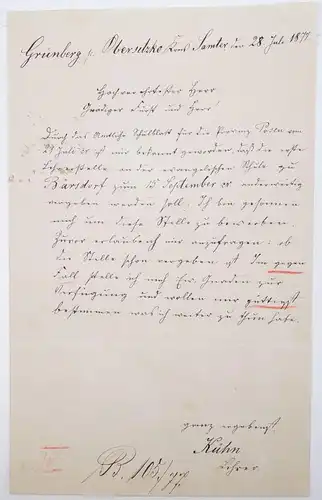 Grünberg b. Obersitzko Kreis Samter den 28 Juli 1877
Hochverehrtester Herr
Gnädiger Fürst und Herr!
Durch das Amtliche Schulblatt für die Provinz Posen vom
29 Juli cr ist mir bekannt geworden, daß die erste
Lehrerstelle an der evangelischen Schule zu
Barsdorf zum 15 September cr anderweitig
vergeben werden soll. Ich bin gesonnen
mich um diese Stelle zu bewerben.
Zuvor erlaube ich mir anzufragen: ob
die Stelle schon vergeben ist. Im gegen
Fall stelle ich mich Ew. Gnaden zur
Verfügung und wollen mir gütigst
bestimmen was ich weiter zu thun habe.
ganz ergebenst
Kühn
Lehrer
B. 105